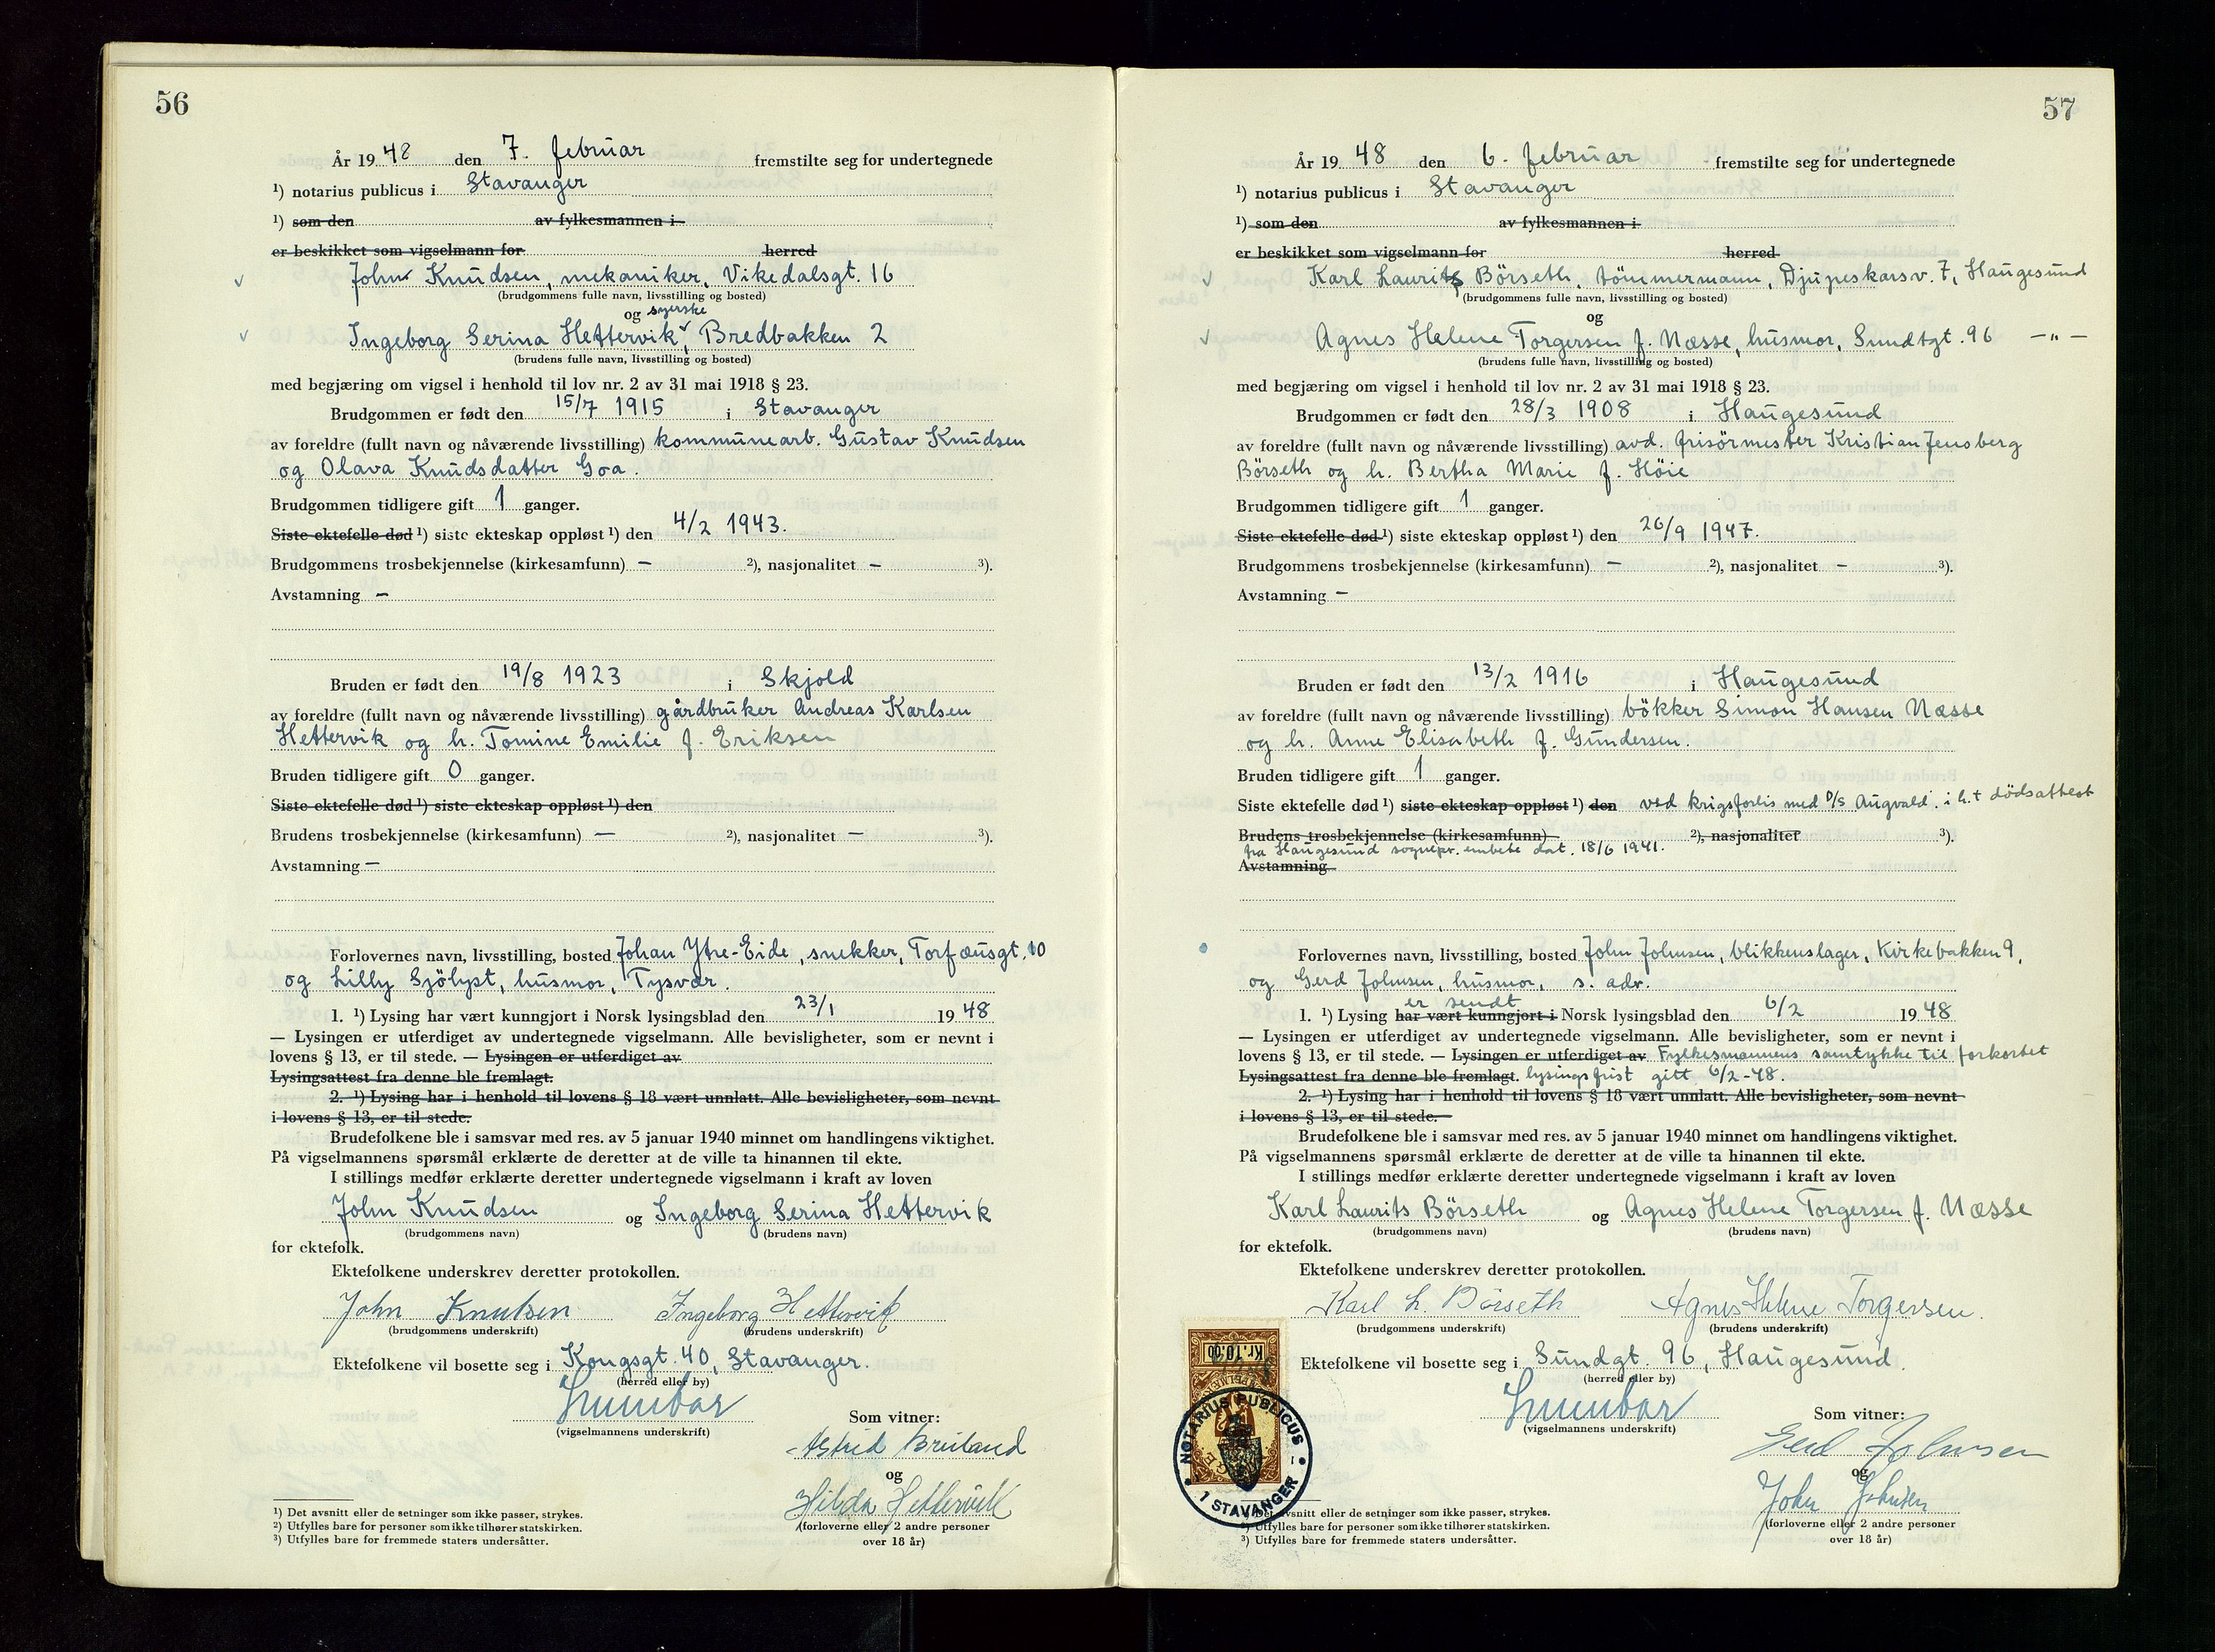 56
År 19 48 den 7. februar fremstilte seg for undertegnede
¹) notarius publicus i Stavanger
¹) som den av fylkesmannen i
er beskikket som vigselmann for herred
John Knudsen, mekaniker, Vikedalsgt. 16
(brudgommens fulle navn, livsstilling og bosted)
og syerske
Ingeborg Serina Hettervik, Bredbakken 2
(brudens fulle navn, livsstilling og bosted)
med begjæring om vigsel i henhold til lov nr. 2 av 31 mai 1918 § 23.
Brudgommen er født den 15/7 1915 i Stavanger
av foreldre (fullt navn og nåværende livsstilling) kommunearb. Gustav Knudsen
og Olava Knudsdatter Goa.
Brudgommen tidligere gift 1 ganger.
Siste ektefelle død ¹) siste ekteskap oppløst ¹) den 4/2 1943.
Brudgommens trosbekjennelse (kirkesamfunn) — ²), nasjonalitet — ³).
Avstamning —
Bruden er født den 19/8 1923 i Skjold
av foreldre (fullt navn og nåværende livsstilling) gårdbruker Andreas Karlsen
Hettervik og h. Tomine Emilie f. Eriksen
Bruden tidligere gift 0 ganger.
Siste ektefelle død ¹) siste ekteskap oppløst ¹) den
Brudens trosbekjennelse (kirkesamfunn) — ²), nasjonalitet — ³).
Avstamning —
Forlovernes navn, livsstilling, bosted Johan Ytre-Eide, snekker, Torfæusgt. 10
og Lilly Sjölyst, husmor, Tysvær.
1. ¹) Lysing har vært kunngjort i Norsk lysingsblad den 23/1 19 48
— Lysingen er utferdiget av undertegnede vigselmann. Alle bevisligheter, som er nevnt i
lovens § 13, er til stede. — Lysingen er utferdiget av
Lysingsattest fra denne ble fremlagt.
2. ¹) Lysing har i henhold til lovens § 18 vært unnlatt. Alle bevisligheter, som nevnt
i lovens § 13, er til stede.
Brudefolkene ble i samsvar med res. av 5 januar 1940 minnet om handlingens viktighet.
På vigselmannens spørsmål erklærte de deretter at de ville ta hinannen til ekte.
I stillings medfør erklærte deretter undertegnede vigselmann i kraft av loven
John Knudsen og Ingeborg Serina Hettervik
(brudgommens navn) (brudens navn)
for ektefolk.
Ektefolkene underskrev deretter protokollen.
John Knutsen Ingeborg Hettervik
(brudgommens underskrift) (brudens underskrift)
Ektefolkene vil bosette seg i Kongsgt. 40, Stavanger.
(herred eller by)
(vigselmannens underskrift)
Som vitner:
Astrid
og
Hilda Hettervik
(forloverne eller 2 andre personer
over 18 år)
¹) Det avsnitt eller de setninger som ikke passer, strykes.
²) Utfylles bare for personer som ikke tilhører statskirken.
³) Utfylles bare for fremmede staters undersåtter.
57
År 19 48 den 6. februar fremstilte seg for undertegnede
¹) notarius publicus i Stavanger
¹) som den av fylkesmannen i
er beskikket som vigselmann for herred
Karl Laurits Börseth, tömmermann, Djupeskarsv. 7, Haugesund
(brudgommens fulle navn, livsstilling og bosted)
og
Agnes Helene Torgersen f. Næsse, husmor, Sundtgt. 96 — " —
(brudens fulle navn, livsstilling og bosted)
med begjæring om vigsel i henhold til lov nr. 2 av 31 mai 1918 § 23.
Brudgommen er født den 28/3 1908 i Haugesund
av foreldre (fullt navn og nåværende livsstilling) avd. frisörmester Kristian Jensberg
Börseth og h. Bertha Marie f. Höie
Brudgommen tidligere gift 1 ganger.
Siste ektefelle død ¹) siste ekteskap oppløst ¹) den 26/9 1947.
Brudgommens trosbekjennelse (kirkesamfunn) — ²), nasjonalitet — ³).
Avstamning —
Bruden er født den 13/2 1916 i Haugesund
av foreldre (fullt navn og nåværende livsstilling) bökker Simon Hansen Næsse
og h. Anne Elisabeth f. Gundersen.
Bruden tidligere gift 1 ganger.
Siste ektefelle død ¹) siste ekteskap oppløst ¹) den ved krigsforlis med D/S Augvald. i h.t dödsattest
Brudens trosbekjennelse (kirkesamfunn) ²), nasjonalitet ³).
fra Haugesund sognepr. embete dat. 18/6 1941.
Avstamning
Forlovernes navn, livsstilling, bosted John Johnsen, blikkenslager, Kirkebakken 9,
og Gerd Johnsen, husmor, s. adr.
er sendt
1. ¹) Lysing har vært kunngjort i Norsk lysingsblad den 6/2 19 48
— Lysingen er utferdiget av undertegnede vigselmann. Alle bevisligheter, som er nevnt i
lovens § 13, er til stede. — Lysingen er utferdiget av Fylkesmannens samtykke til forkortet
Lysingsattest fra denne ble fremlagt. lysingsfrist gitt 6/2-48.
2. ¹) Lysing har i henhold til lovens § 18 vært unnlatt. Alle bevisligheter, som nevnt
i lovens § 13, er til stede.
Brudefolkene ble i samsvar med res. av 5 januar 1940 minnet om handlingens viktighet.
På vigselmannens spørsmål erklærte de deretter at de ville ta hinannen til ekte.
I stillings medfør erklærte deretter undertegnede vigselmann i kraft av loven
Karl Laurits Börseth og Agnes Helene Torgersen f. Næsse
(brudgommens navn) (brudens navn)
for ektefolk.
Ektefolkene underskrev deretter protokollen.
Karl L. Börseth Agnes Helene Torgersen.
(brudgommens underskrift) (brudens underskrift)
Ektefolkene vil bosette seg i Sundgt. 96, Haugesund.
(herred eller by)
(vigselmannens underskrift)
Som vitner:
Gerd Johnsen
og
John Johnsen
(forloverne eller 2 andre personer
over 18 år)
Kr. 10.00
NOTARIUS PUBLICUS
I STAVANGER
¹) Det avsnitt eller de setninger som ikke passer, strykes.
²) Utfylles bare for personer som ikke tilhører statskirken.
³) Utfylles bare for fremmede staters undersåtter.